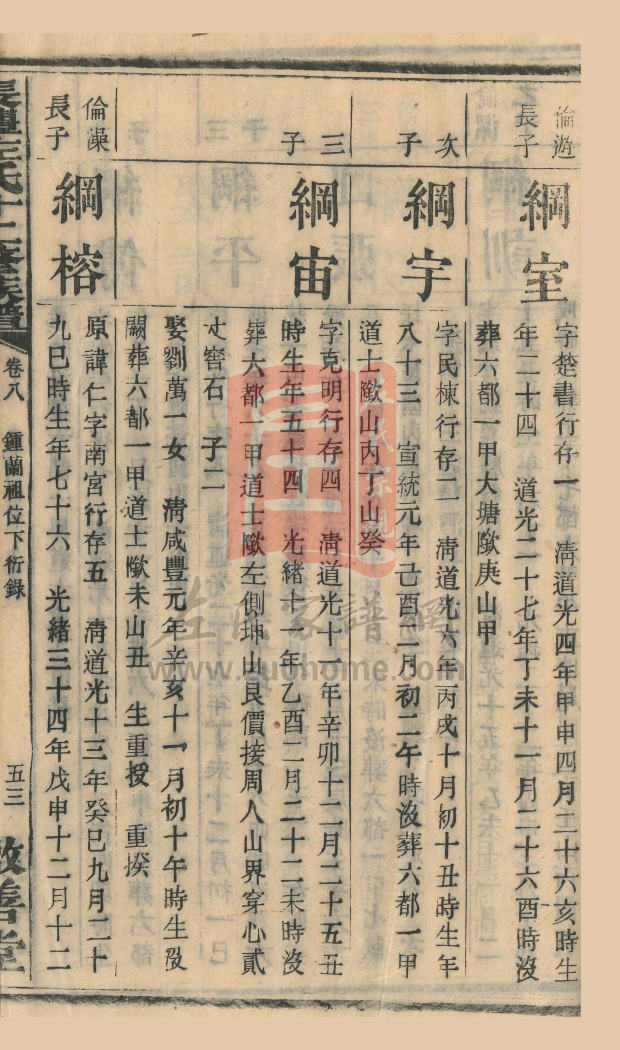 倫遊
長子
綱室
字楚書行存一 清道光四年甲申四月二十六亥時生
年二十四 道光二十七年丁未十一月二十六酉時沒
葬六都一甲大塘歟庚山甲
次
子
綱宇
字民棟行存二 清道光六年丙戌十月初十丑時生年
八十三 宣統元年己酉二月初二午時沒葬六都一甲
道士歟山丙丁山癸
三
子
綱宙
字克明行存四 清道光十一年辛卯十二月二十五丑
時生年五十四 光緒十一年乙酉二月二十二未時沒
葬六都一甲道士歟左側坤山艮價接周人山界穿心貳
丈窖石 子二
娶劉萬一女 清咸豐元年辛亥十一月初十午時生沒
闕葬六都一甲道士歟未山丑 生重授 重揆
倫澡
長子
綱榕
原諱仁字南宮行存五 清道光十三年癸巳九月二十
九巳時生年七十六 光緒三十四年戊申十二月十二
左氏十二修族譜
卷八 鍾蘭祖位下衍錄
五三
敦善堂
左氏家譜網
www.zuohome.com